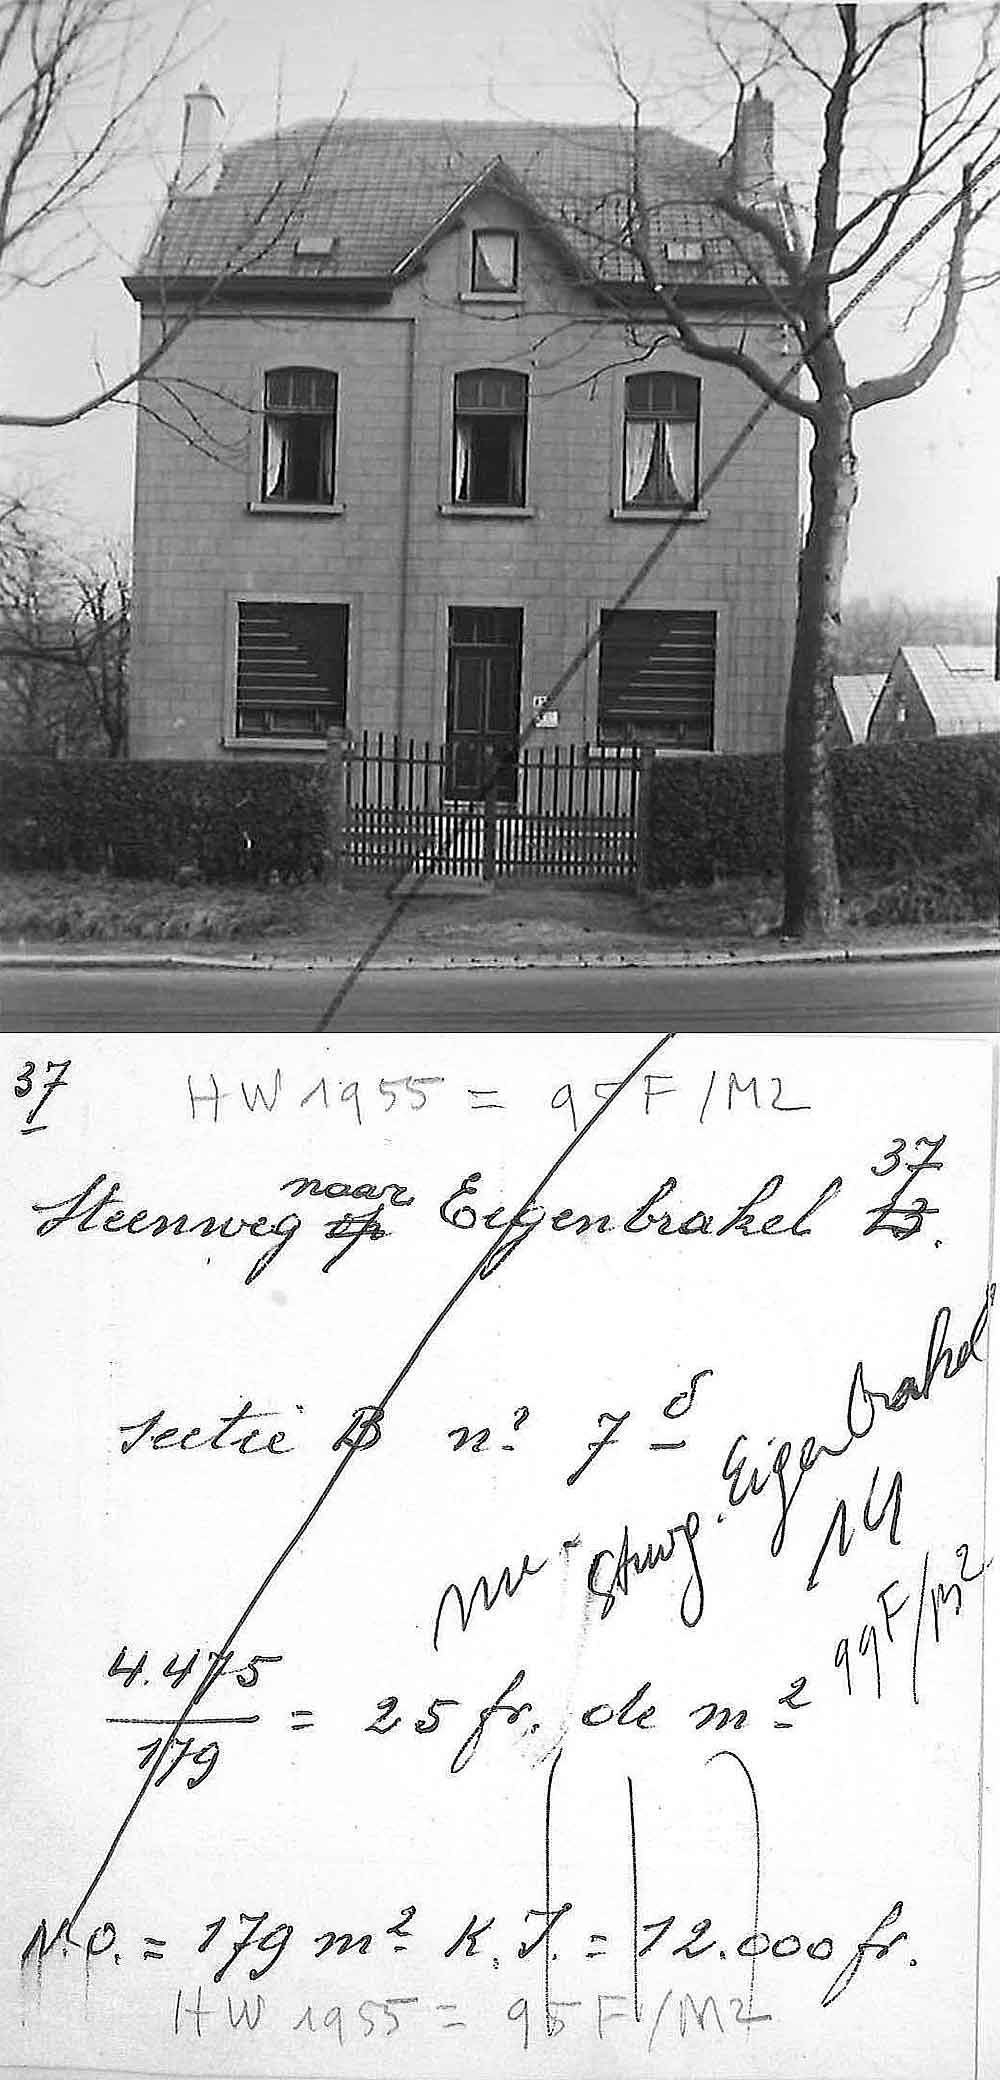 37
HW 1955 = 95 F/M2
naar 37
Steenweg op Eigenbrakel 13.
sectie B n? 7 δ
Stwg. Eigenbrakel
14
99 F/m²
4.475
179
= 25 fr. de m²
N.O. = 179 m² K.I. = 12.000 fr.
HW 1955 = 95 F/M2